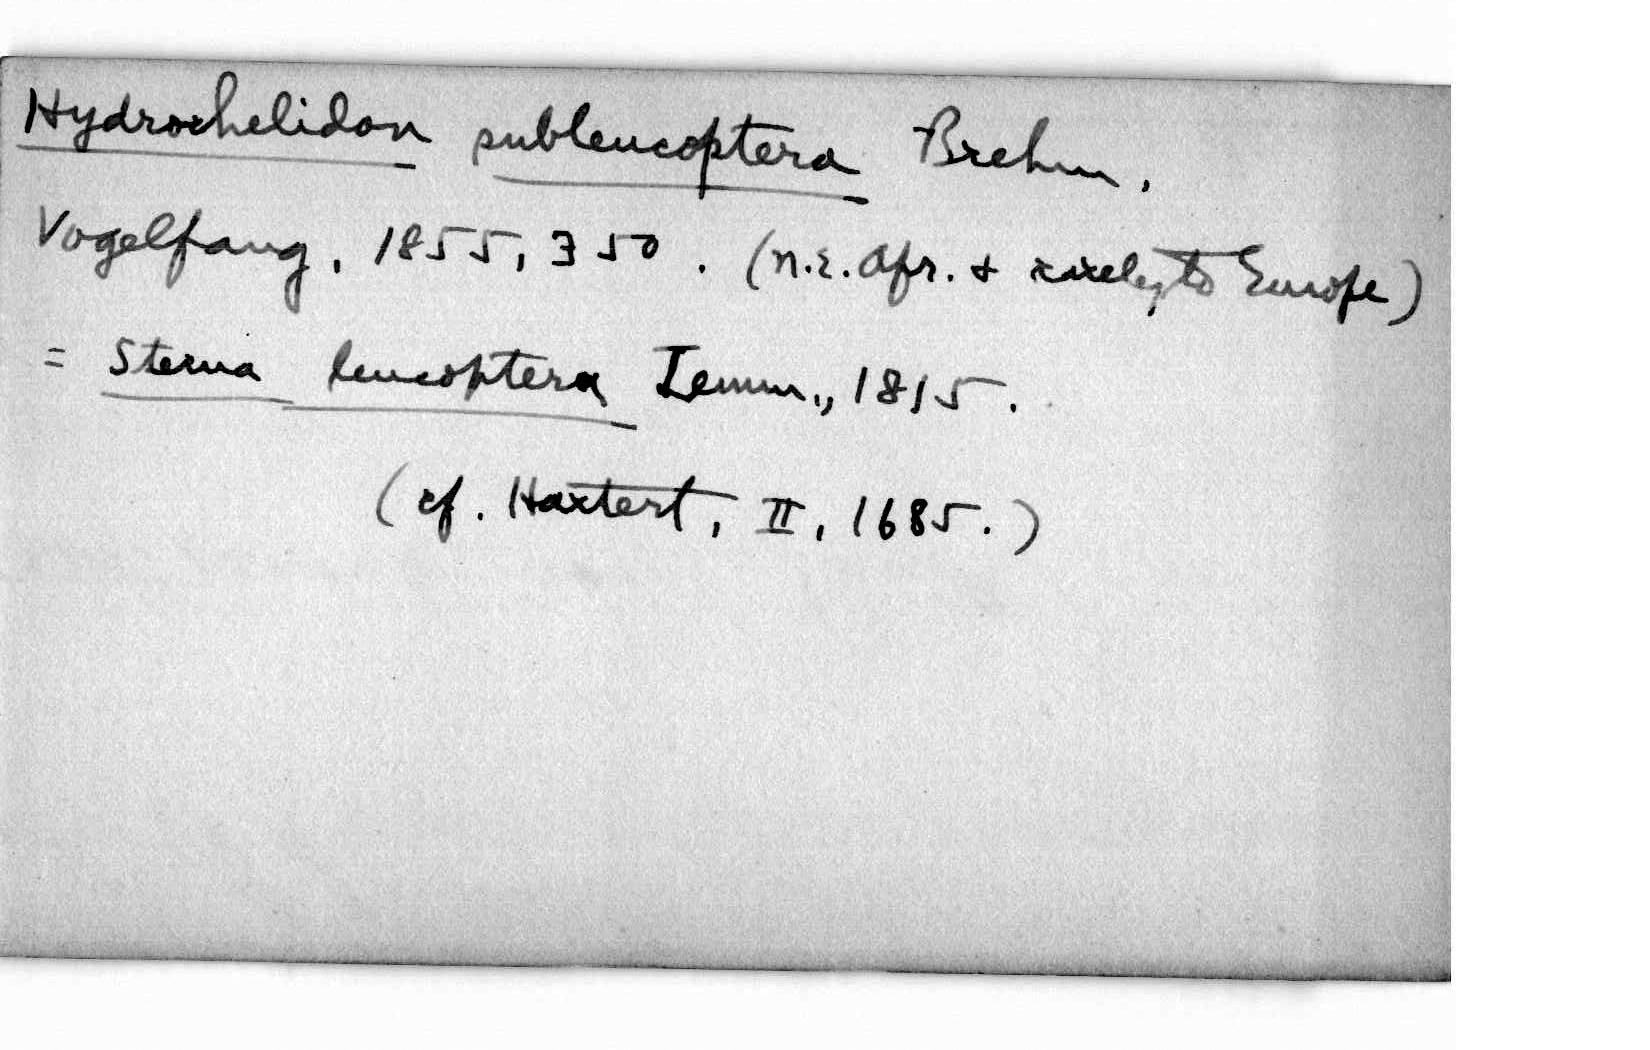 Hydrochelidon subleucoptera Brehm,
Vogelfang, 1855, 350. (n.e. Afr. & rarely to Europe)
= Sterna leucoptera Temm., 1815.
(cf. Hartert, II, 1685.)